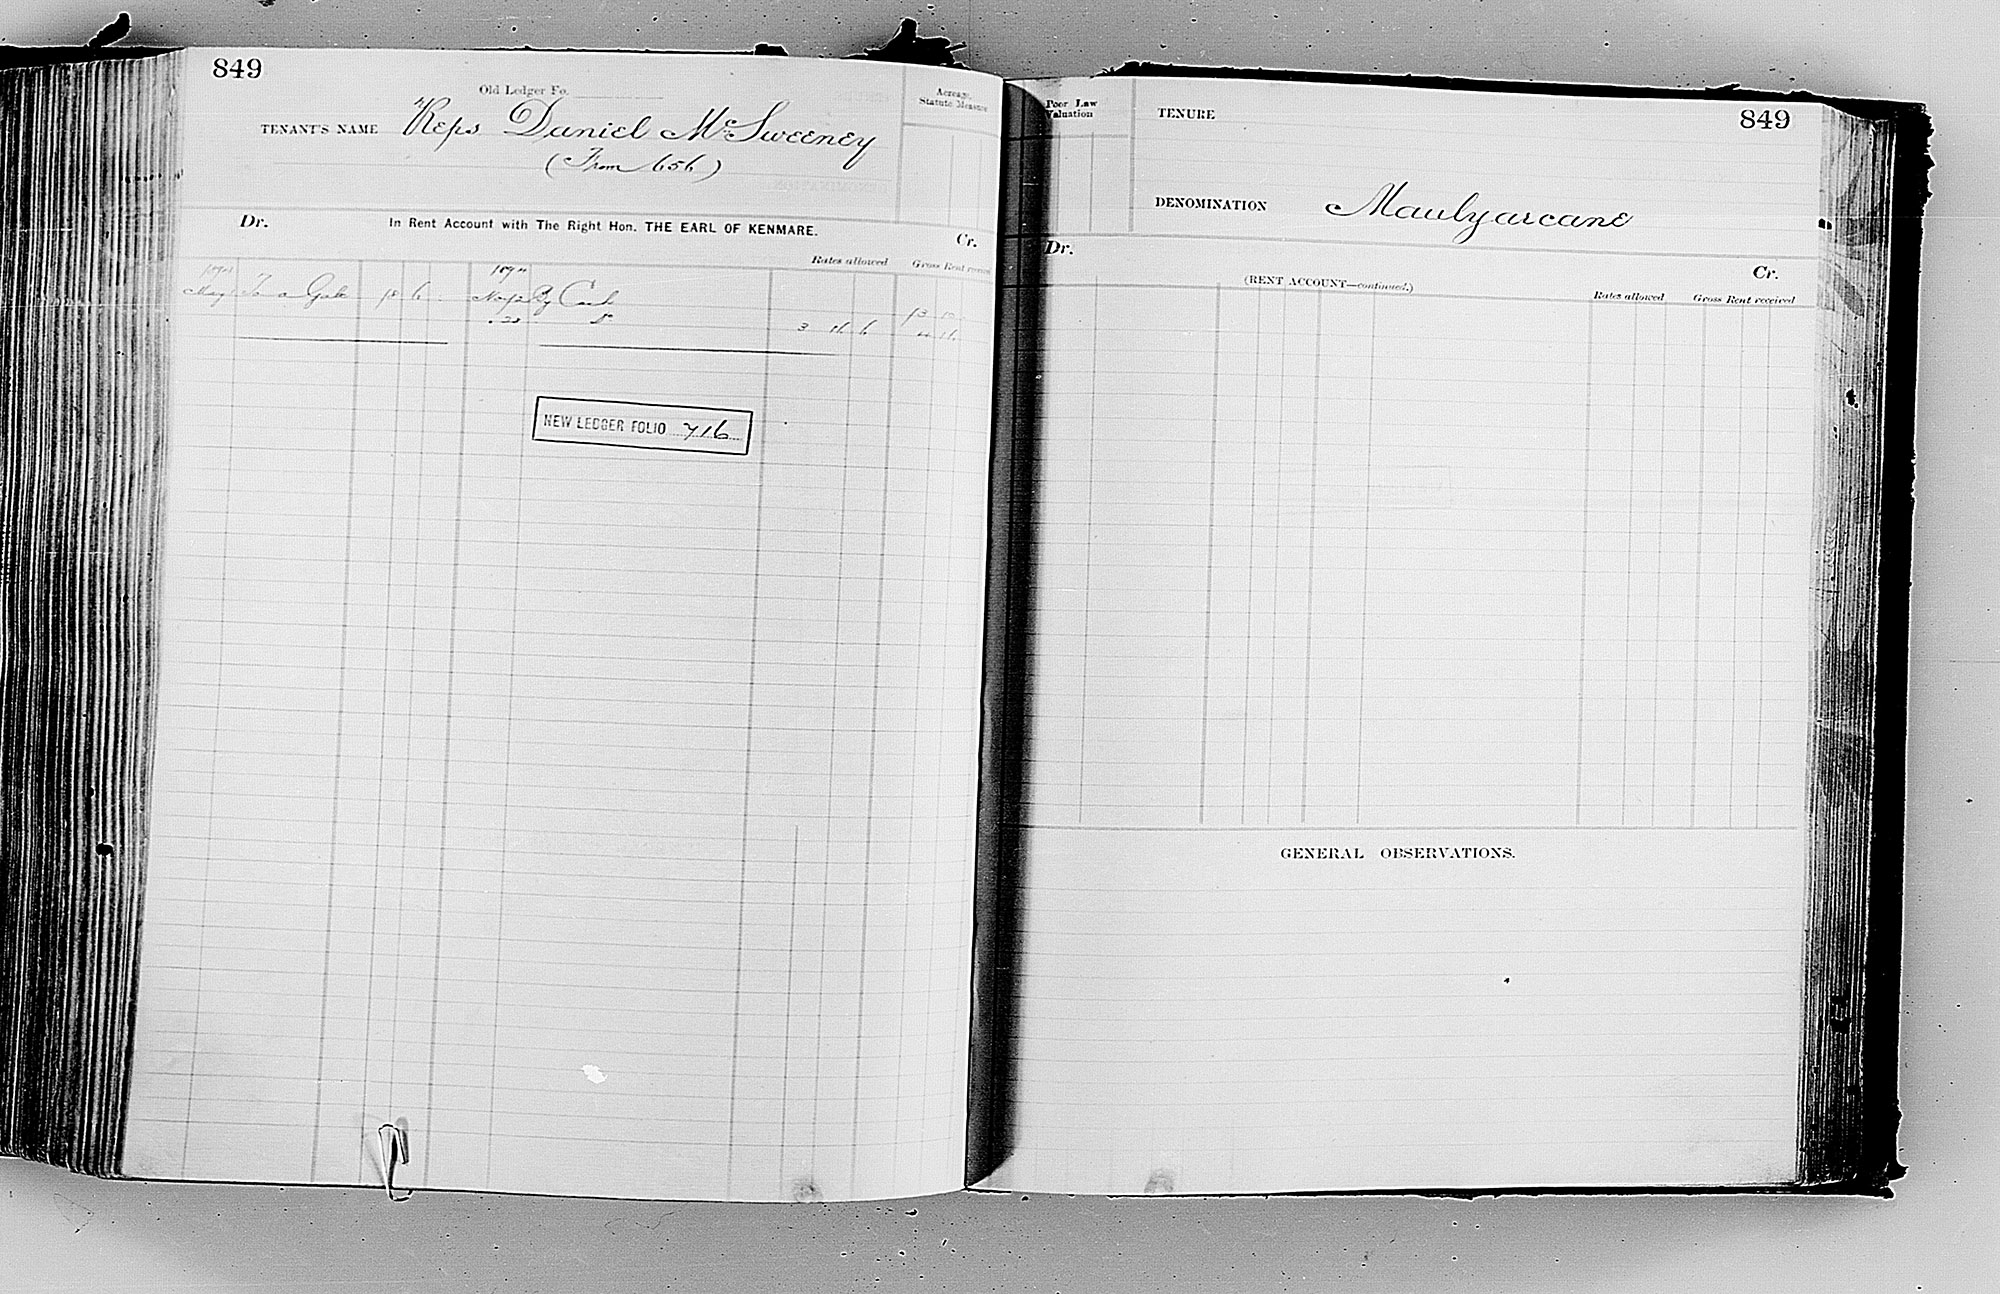 849
Old Ledger Fo.
Acreage, Statute Measure
TENANT'S NAME Reps Daniel McSweeney
(From 656)
Dr. In Rent Account with The Right Hon. THE EARL OF KENMARE. Cr.
Rates allowed Gross Rent received
1894 1894
May To a Gale 18 6 May By Cash 13 10
23 3 11 6 4 11
NEW LEDGER FOLIO 716
Poor Law Valuation
TENURE
849
DENOMINATION Maulyarcane
Dr. Cr.
(RENT ACCOUNT—continued.)
Rates allowed Gross Rent received
GENERAL OBSERVATIONS.